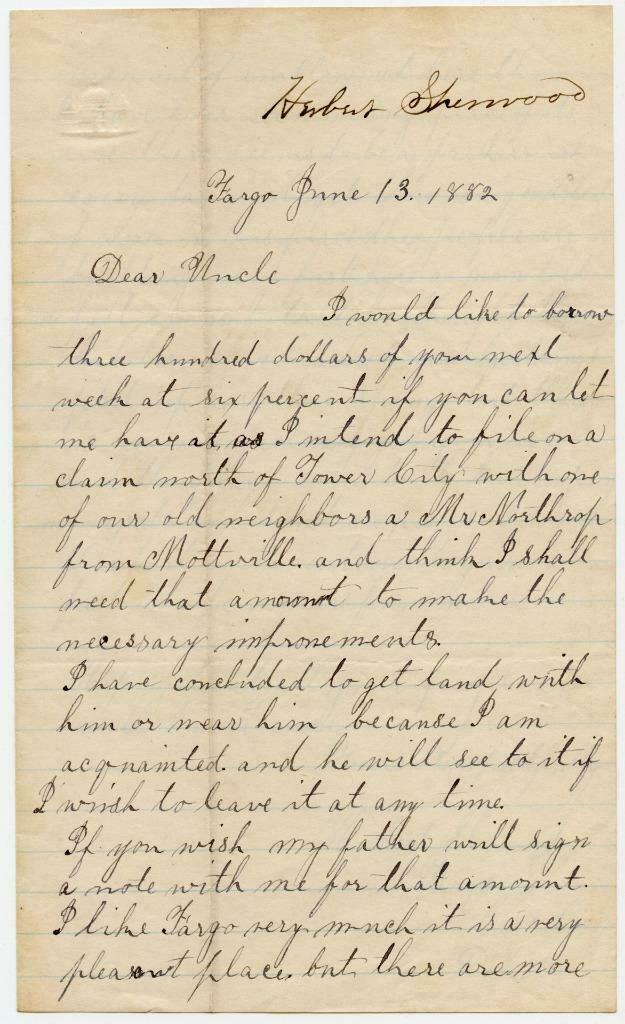 Herbert Sherwood
Fargo June 13. 1882
Dear Uncle
I would like to borrow
three hundred dollars of you next
week at six percent if you can let
me have it as I intend to file on a
claim north of Tower City with one
of our old neighbors a Mr Northrop
from Mottville. and think I shall
need that amount to make the
necessary improvements.
I have concluded to get land with
him or near him because I am
acquainted. and he will see to it if
I wish to leave it at any time.
If you wish my father will sign
a note with me for that amount.
I like Fargo very much it is a very
pleasent place. but there are more